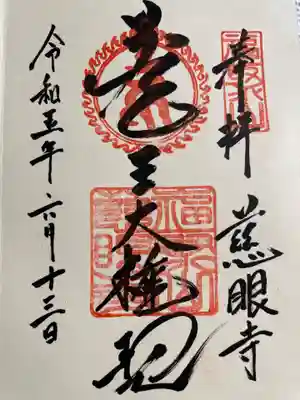 奉拝 慈眼寺
蔵王大権現
令和五年 六月十三日